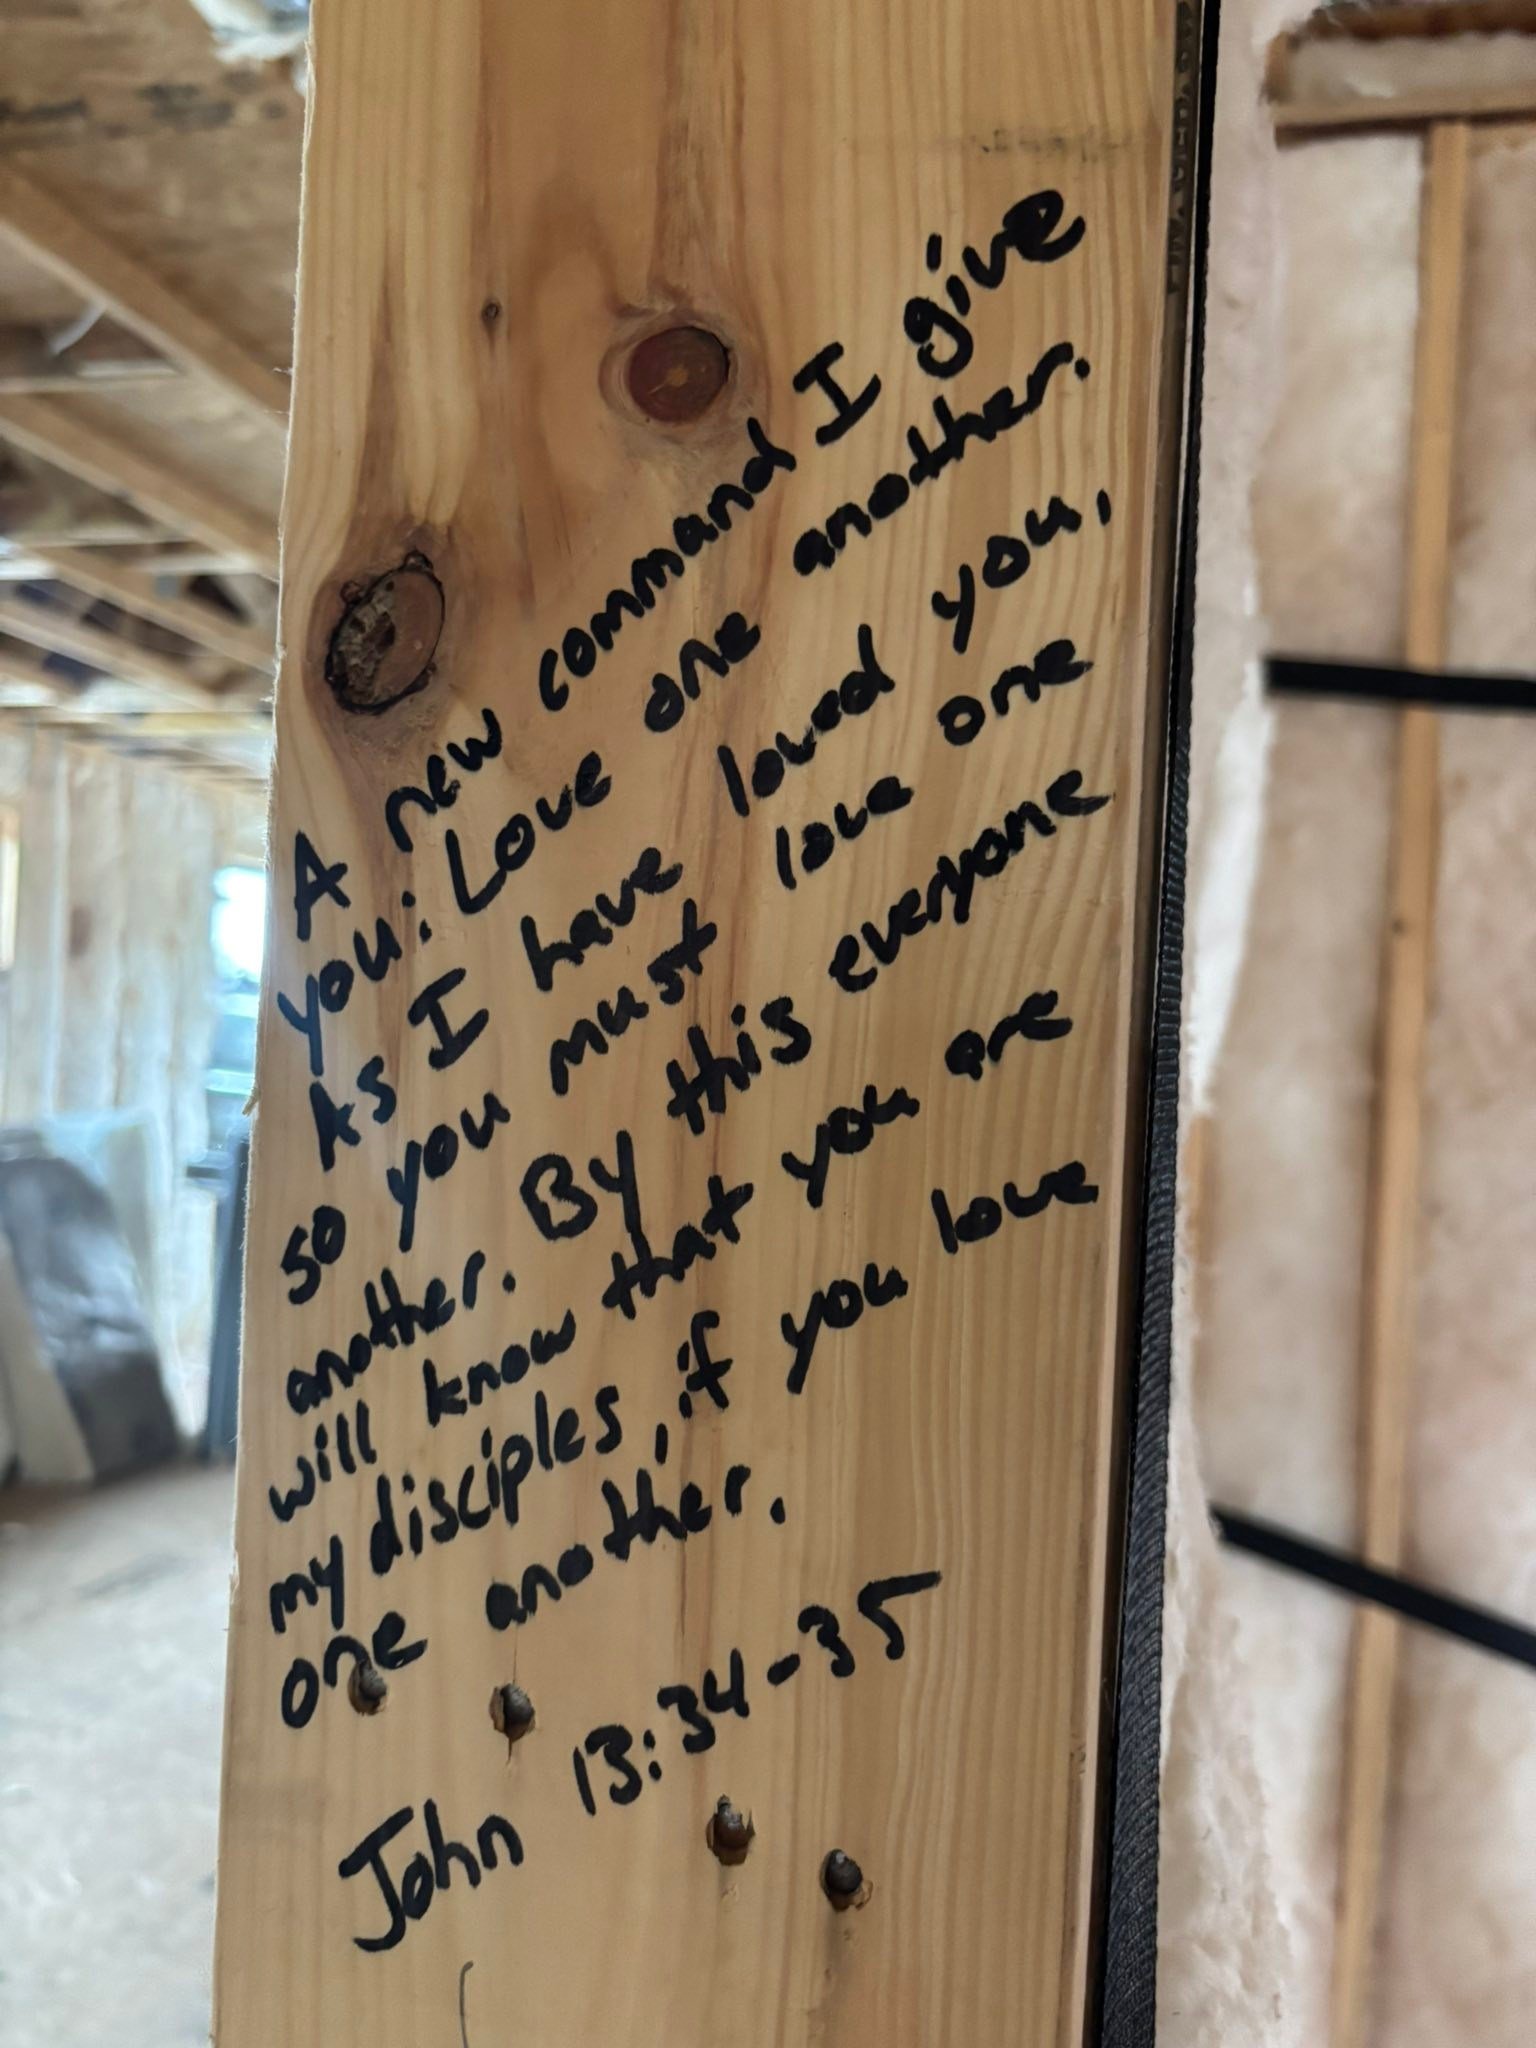 A new command I give
you: Love one another.
As I have loved you,
so you must love one
another. By this everyone
will know that you are
my disciples, if you love
one another.
John 13:34-35